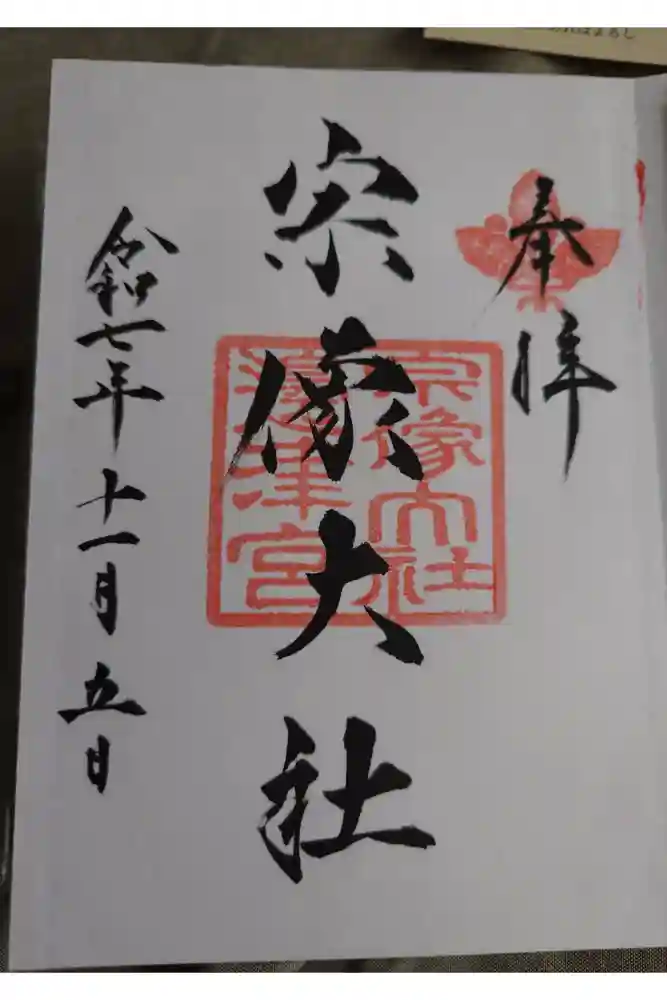 ばよろし
奉拝
宗像大社
宗像大社
邊津宮
令和七年十一月五日